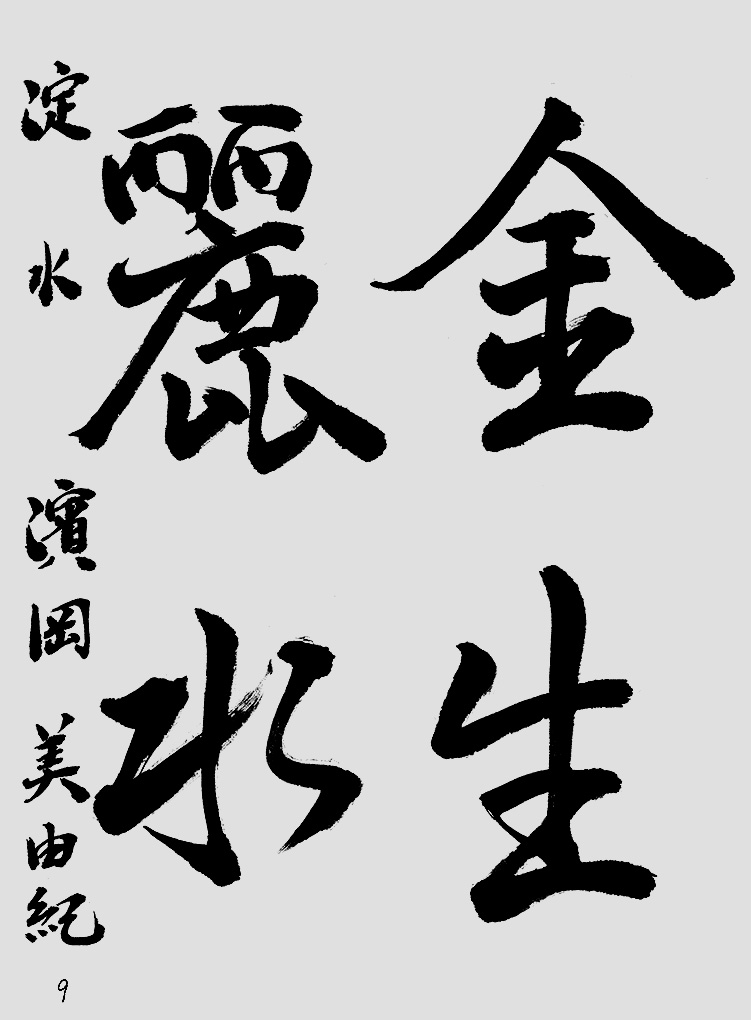 金生
麗水
淀水 濱岡美由紀
9